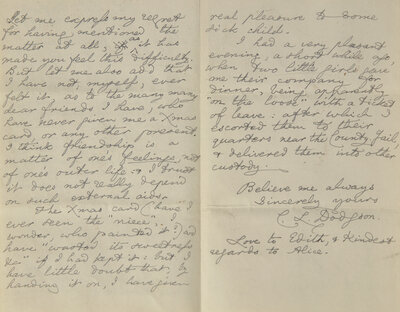 Let me express my regret
for having mentioned the
matter at all, if as it has
made you feel this difficulty.
But let me also add that
I have not, myself, ever
felt it as to the many many
dear friends I have, who
have never given me a Xmas
card, or any other present.
I think friendship is a
matter of one's feelings, not
of one's outer life, & I trust
it does not really depend
on such external aids.
The Xmas card, have I
ever seen the "niece". I
wonder, who painted it?) would
have "wasted its sweetness
&c" if I had kept it: but I
have little doubt that, by
handing it on, I have given
real pleasure to some
sick child.
I had a very pleasant
evening, a short while ago,
when two little girls gave
me their company for
dinner, being apparently
"on the loose" with a ticket
of leave: after which I
escorted them to their
quarters near the County Jail,
& delivered them into other
custody.
Believe me always
Sincerely yours
C. L. Dodgson.
Love to Edith, & kindest
regards to Alice.